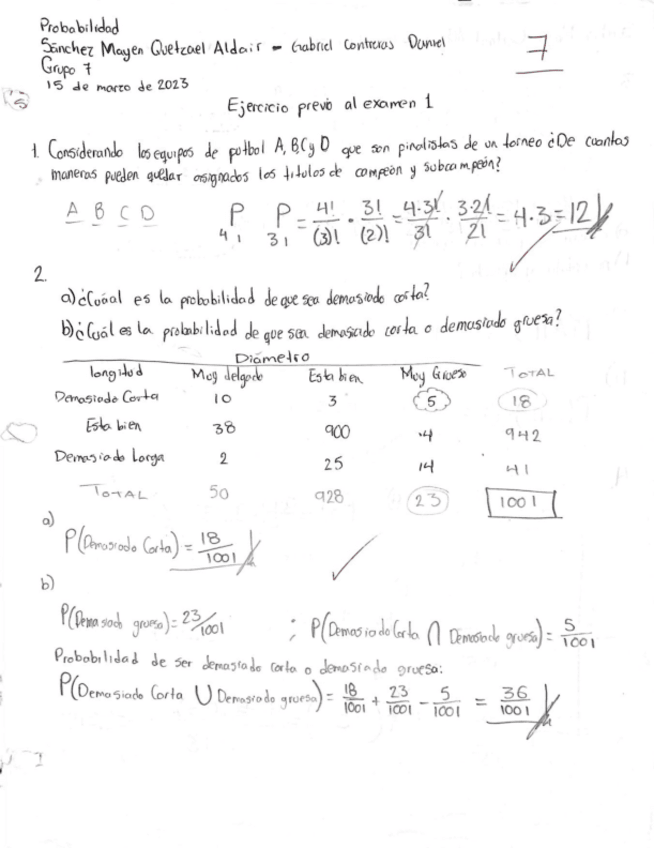 Probabilidad
Sánchez Mayen Quetzael Aldair - Gabriel Contreras Daniel
7
Grupo 7
15 de marzo de 2023
Ejercicio previo al examen 1
1. Considerando los equipos de futbol A, B, C y D que son finalistas de un torneo ¿De cuantas
maneras pueden quedar asignados los titulos de campeón y subcampeón?
A B C D   P4,1 P3,1 = 4!/(3)! · 3!/(2)! = 4·3!/3! · 3·2!/2! = 4·3 = 12
2.
a) ¿Cuál es la probabilidad de que sea demasiado corta?
b) ¿Cuál es la probabilidad de que sea demasiado corta o demasiado gruesa?
Diámetro
longitud Muy delgado Esta bien Muy Grueso TOTAL
Demasiado Corta 10 3 5 18
Esta bien 38 900 4 942
Demasiado Larga 2 25 14 41
TOTAL 50 928 23 1001
a)
P(Demasiado Corta) = 18/1001
b)
P(Demasiado gruesa) = 23/1001 ; P(Demasiado Corta ∩ Demasiado gruesa) = 5/1001
Probabilidad de ser demasiado corta o demasiado gruesa:
P(Demasiado Corta ∪ Demasiado gruesa) = 18/1001 + 23/1001 - 5/1001 = 36/1001